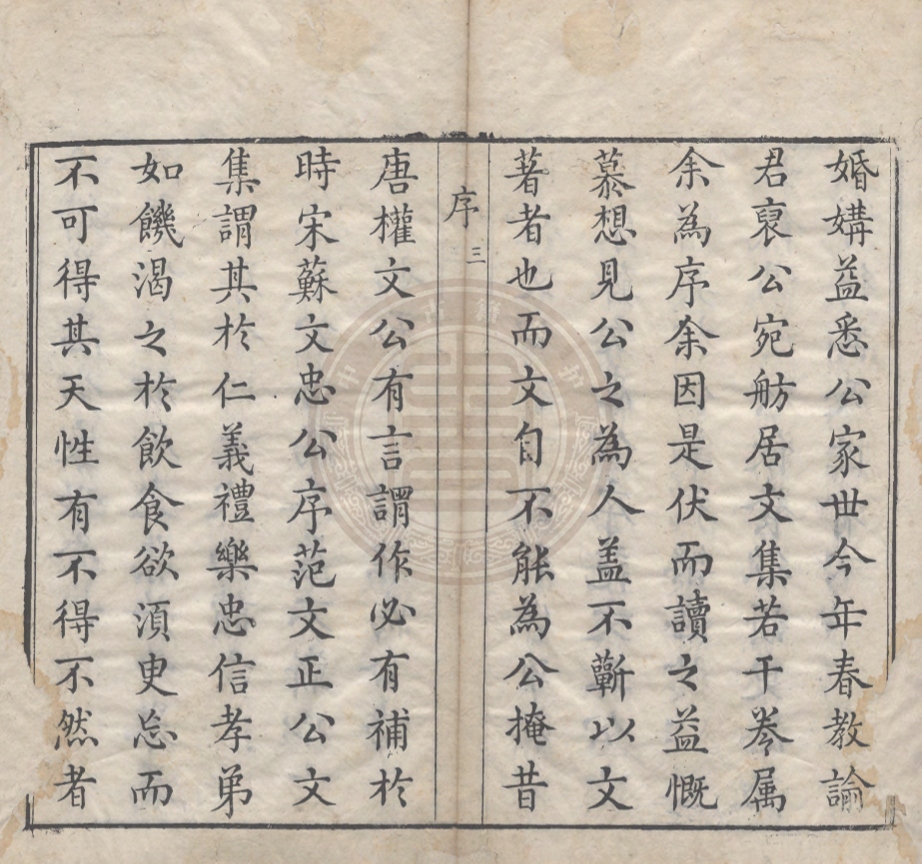 婚媾益悉公家世今年春教諭
君裒公宛舫居文集若干卷属
余為序余因是伏而讀之益慨
慕想見公之為人盖不蘄以文
著者也而文自不能為公掩昔
序 三
唐權文公有言謂作必有補於
時宋蘇文忠公序范文正公文
集謂其於仁義禮樂忠信孝弟
如饑渴之於飲食欲須更忘而
不可得其天性有不得不然者